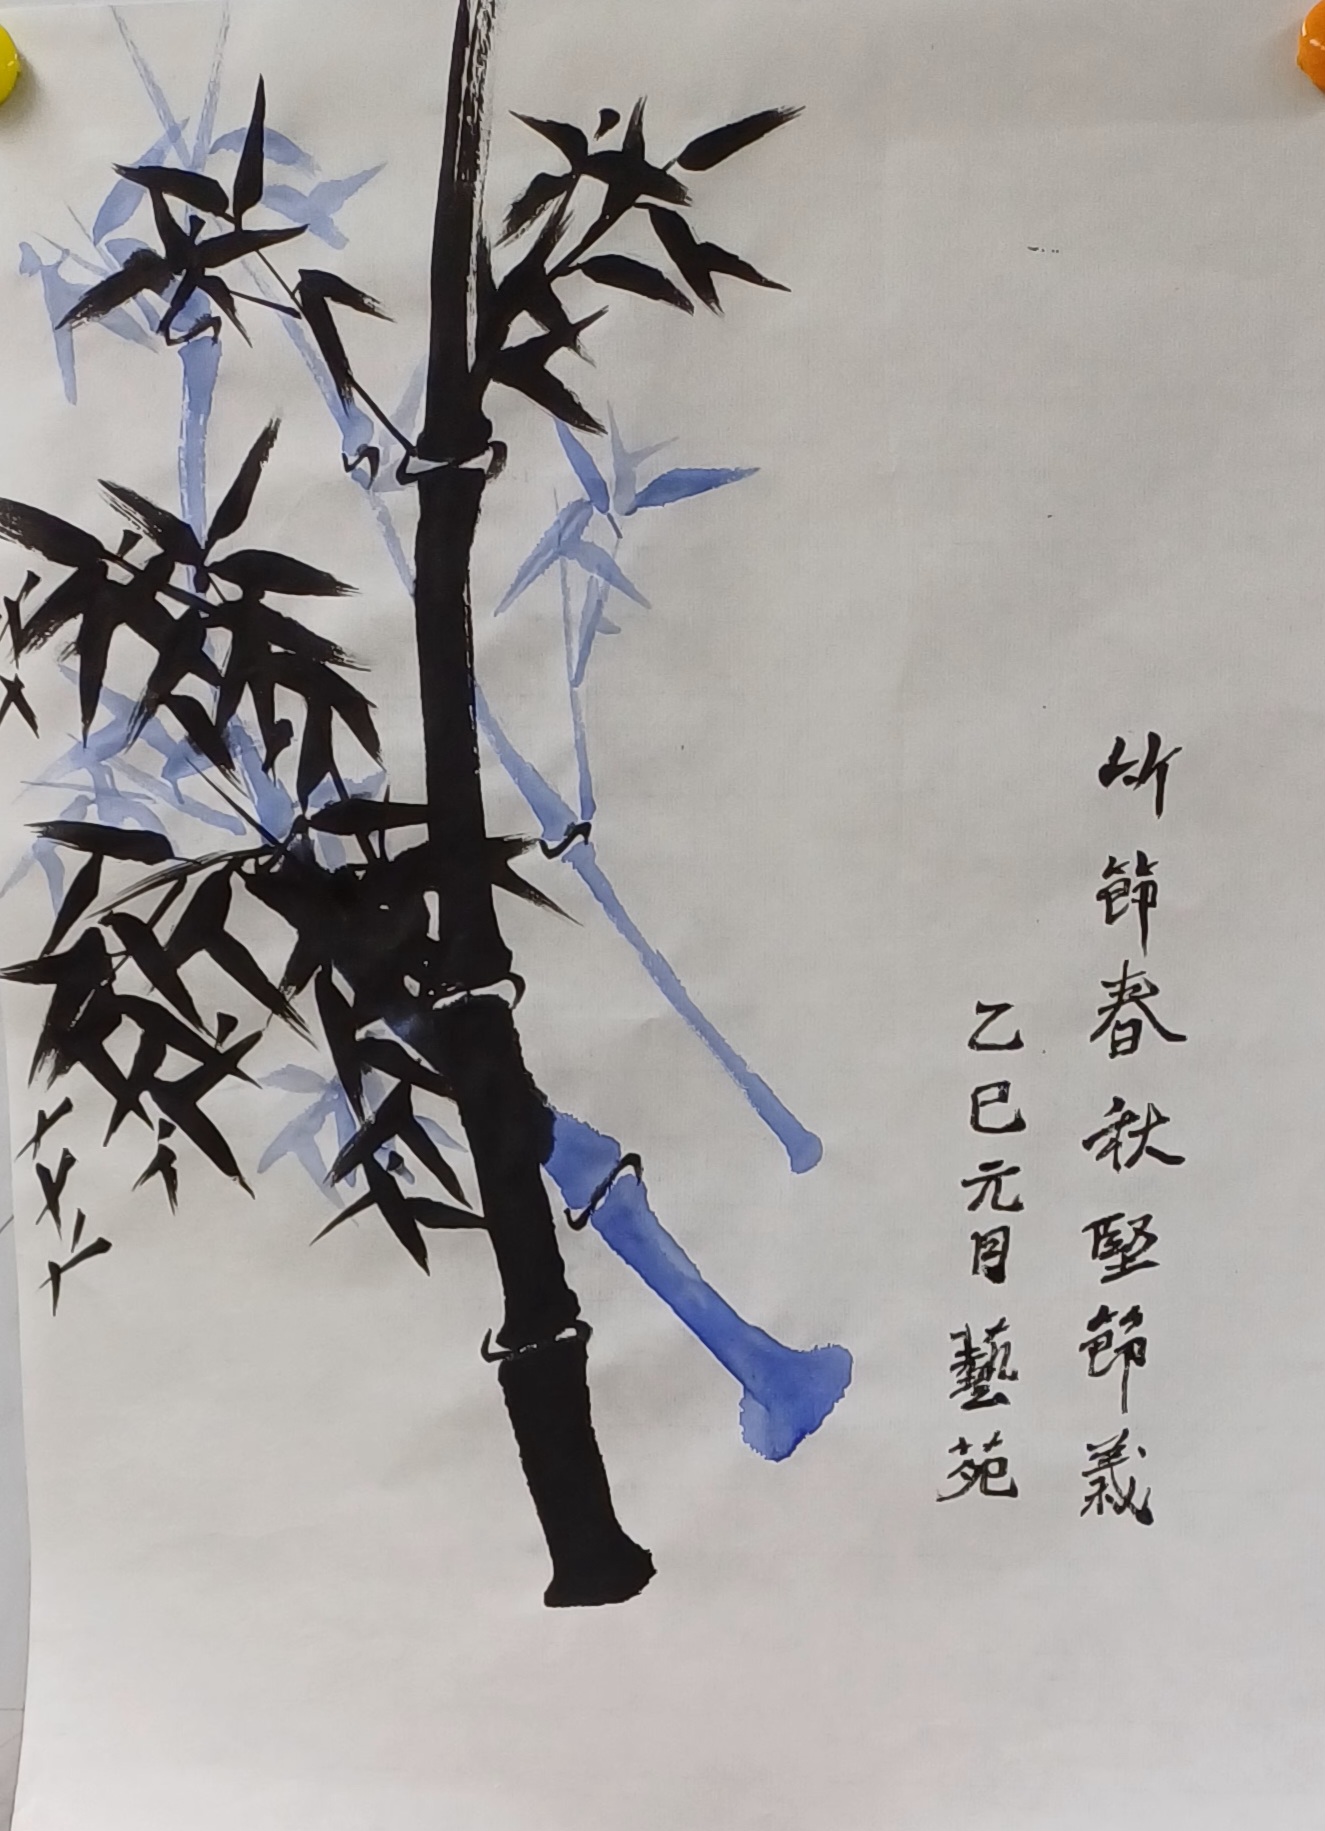 竹節春秋堅節義
乙巳元月藝苑